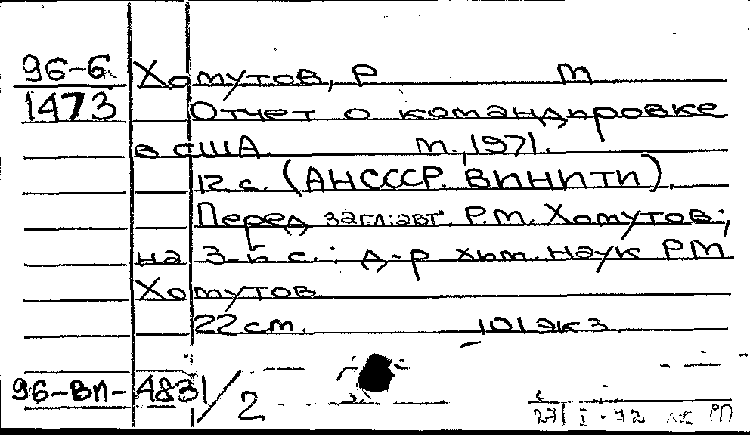 96-6 Хомутов, Р М
1473 Отчет о командировке
в США. М., 1971.
12 с. (АН СССР. ВИНИТИ).
Перед загл: авт. Р.М. Хомутов;
на 3-й с.: д-р хим. наук РМ
Хомутов
22 см. 101 экз.
96-ВП-4831/2
27 I-72